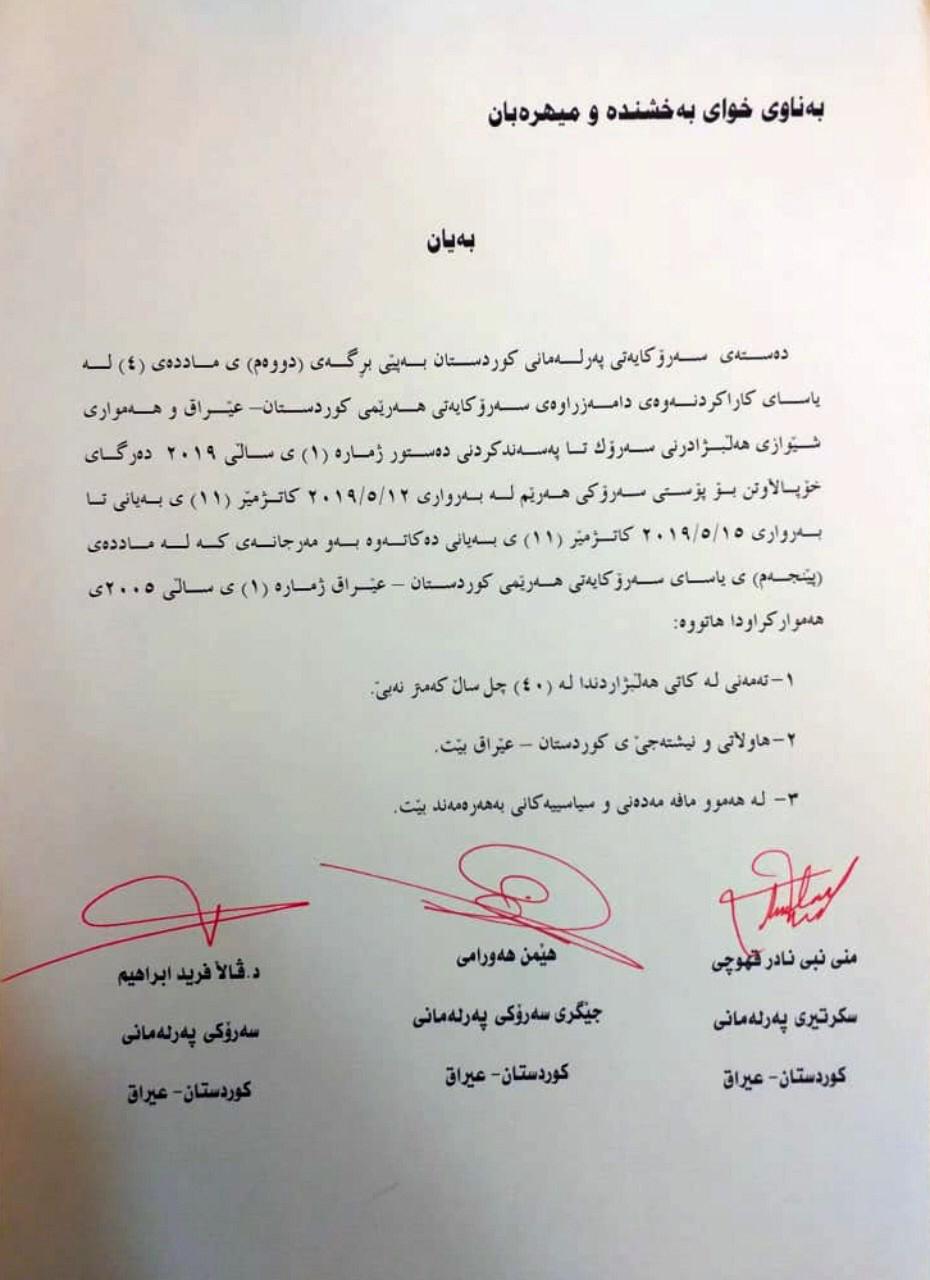 بەناوی خوای بەخشندە و میهرەبان
بەیان
دەستەی سەرۆکایەتی پەرلەمانی کوردستان بەپێی برگەی (دووەم) ی ماددەی (٤) لە
یاسای کاراکردنەوەی دامەزراوەی سەرۆکایەتی هەرێمی کوردستان– عێراق و هەمواری
شێوازی هەڵبژادرنی سەرۆك تا پەسەندکردنی دەستور ژمارە (١) ی ساڵی ٢٠١٩ دەرگای
خۆپاڵاوتن بۆ پۆستی سەرۆکی هەرێم لە بەرواری ٢٠١٩/٥/١٢ کاتژمێر (١١) ی بەیانی تا
بەرواری ٢٠١٩/٥/١٥ کاتژمێر (١١) ی بەیانی دەکاتەوە بەو مەرجانەی کە لە ماددەی
(پێنجەم) ی یاسای سەرۆکایەتی هەرێمی کوردستان – عێراق ژمارە (١) ی ساڵی ٢٠٠٥ی
هەموارکراودا هاتووە:
١–تەمەنی لە کاتی هەڵبژاردندا لە (٤٠) چل ساڵ کەمتر نەبێ.
٢–هاوڵاتی و نیشتەجێ ی کوردستان – عێراق بێت.
٣– لە هەموو مافە مەدەنی و سیاسییەکانی بەهەرەمەند بێت.
منی نبی نادر قهوچی
سکرتیری پەرلەمانی
کوردستان– عیراق
هێمن هەورامی
جێگری سەرۆکی پەرلەمانی
کوردستان– عیراق
د.ڤالأ فرید ابراهیم
سەرۆکی پەرلەمانی
کوردستان– عیراق